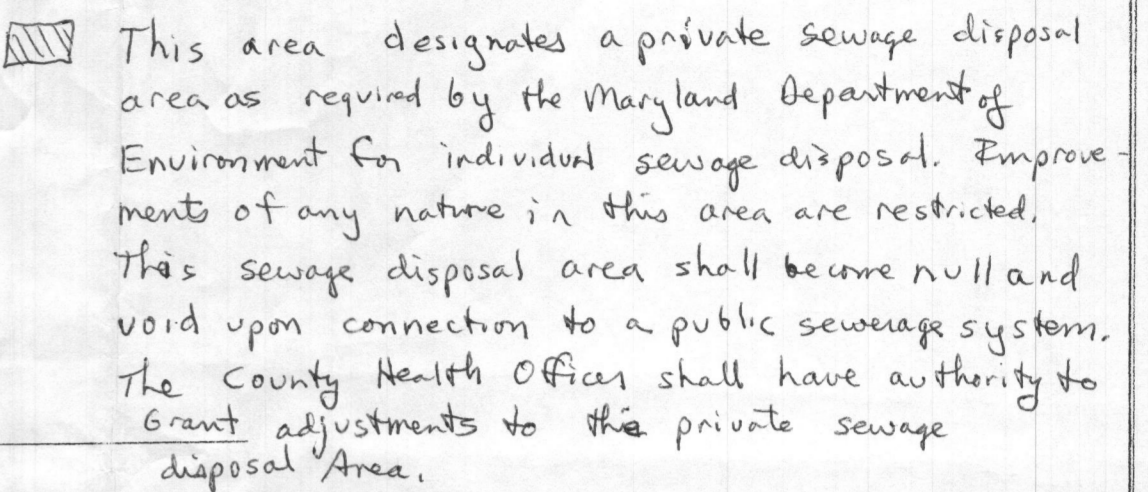 This area designates a private sewage disposal
area as required by the Maryland Department of
Environment for individual sewage disposal. Improve-
ments of any nature in this area are restricted.
This sewage disposal area shall become null and
void upon connection to a public sewerage system.
The County Health Officer shall have authority to
Grant adjustments to the private sewage
disposal Area.